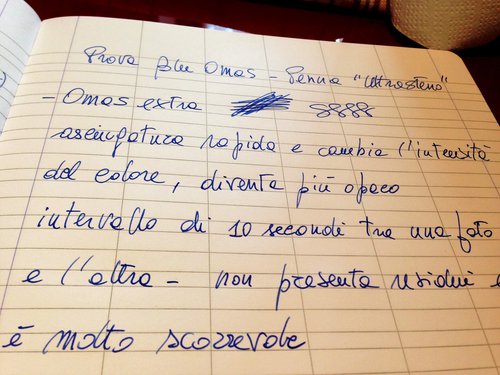 Prova blu Omas - Penna "Ultrasteno"
- Omas extra 8888
asciugatura rapida e cambia l'intensità
del colore, diventa più opaco
intervallo di 10 secondi tra una foto
e l'altra - non presenta residui e
è molto scorrevole